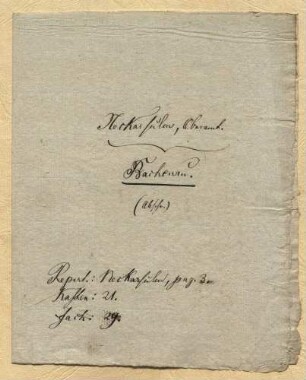 Neckarsulm, Oberamt.
Bachenau.
(Abschr.)
Repert.: Neckarsulm, pag. 3.
Kasten: 21.
Fach: 29.